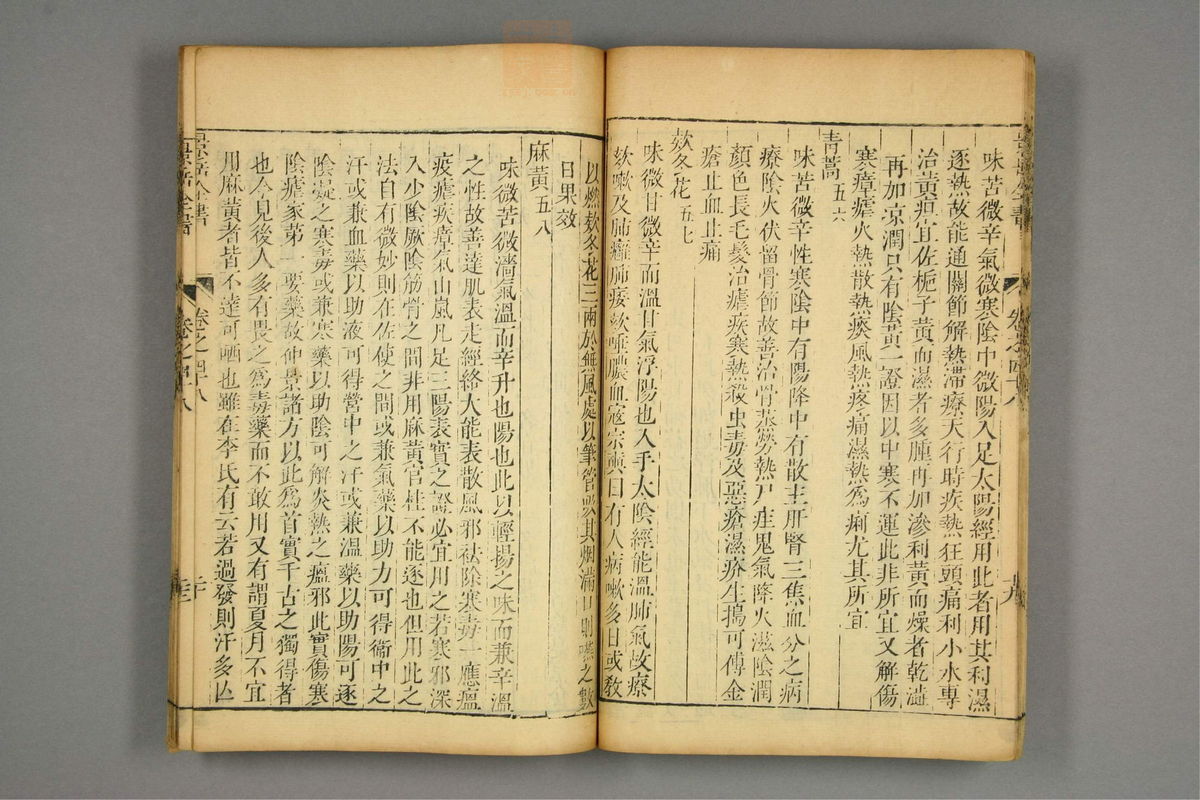 味苦微辛氣微寒陰中微陽入足太陽經用此者用其利濕
逐熱故能通關節解熱滯療天行時疾熱狂頭痛利小水專
治黃疸宜佐梔子黃而濕者多腫再加滲利黃而燥者乾澁
再加凉潤只有陰黃一證因以中寒不運此非所宜又解傷
寒瘴瘧火熱散熱痰風熱疼痛濕熱爲痢尤其所宜
青蒿五六
味苦微辛性寒陰中有陽降中有散主肝腎三焦血分之病
療陰火伏留骨節故善治骨蒸勞熱尸疰鬼氣降火滋陰潤
顏色長毛髮治瘧疾寒熱殺虫毒及惡瘡濕疥生搗可傅金
瘡止血止痛
欵冬花五七
味微甘微辛而溫甘氣浮陽也入手太陰經能溫肺氣故療
欬嗽及肺癰肺痿欬唾膿血寇宗奭曰有人病嗽多日或教
以燃欵冬花三兩於無風處以筆管吸其烟滿口則嚥之數
日果效
麻黃五八
味微苦微濇氣溫而辛升也陽也此以輕揚之味而兼辛溫
之性故善達肌表走經絡大能表散風邪袪除寒毒一應瘟
疫瘧疾瘴氣山嵐凡足三陽表實之證必宜用之若寒邪深
入少陰厥陰筋骨之間非用麻黃官桂不能逐也但用此之
法自有微妙則在佐使之間或兼氣藥以助力可得衞中之
汗或兼血藥以助液可得營中之汗或兼溫藥以助陽可逐
陰凝之寒毒或兼寒藥以助陰可解炎熱之瘟邪此實傷寒
陰瘧家第一要藥故仲景諸方以此爲首實千古之獨得者
也今見後人多有畏之爲毒藥而不敢用又有謂夏月不宜
用麻黃者皆不達可哂也雖在李氏有云若過發則汗多亾
景岳全書
卷之四十八